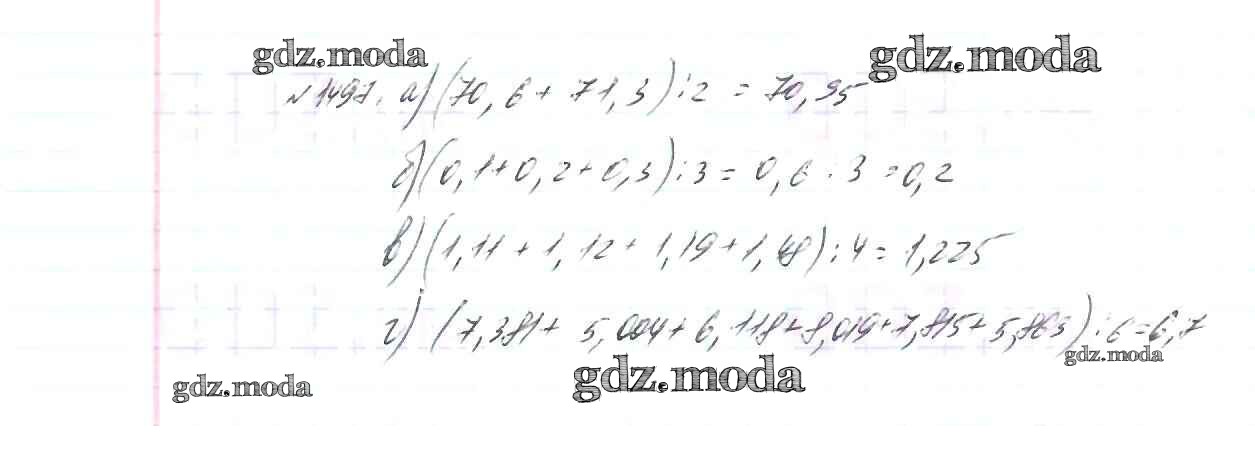 gdz.moda gdz.moda
№ 1497. а) (70,6 + 71,3) : 2 = 70,95
б) (0,1 + 0,2 + 0,3) : 3 = 0,6 : 3 = 0,2
в) (1,11 + 1,12 + 1,19 + 1,48) : 4 = 1,225
г) (7,381 + 5,004 + 6,118 + 8,019 + 7,815 + 5,863) : 6 = 6,7
gdz.moda gdz.moda gdz.moda